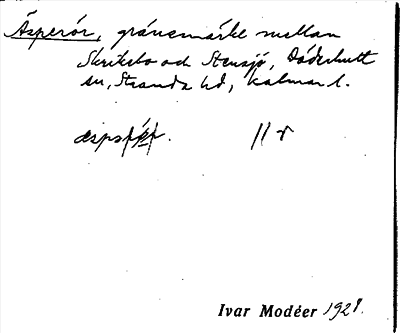 Äsperör, gränsmärke mellan
Skriksbo och Stensjö, Döderhult
sn, Stranda hd, Kalmar l.
Ivar Modéer 1928.